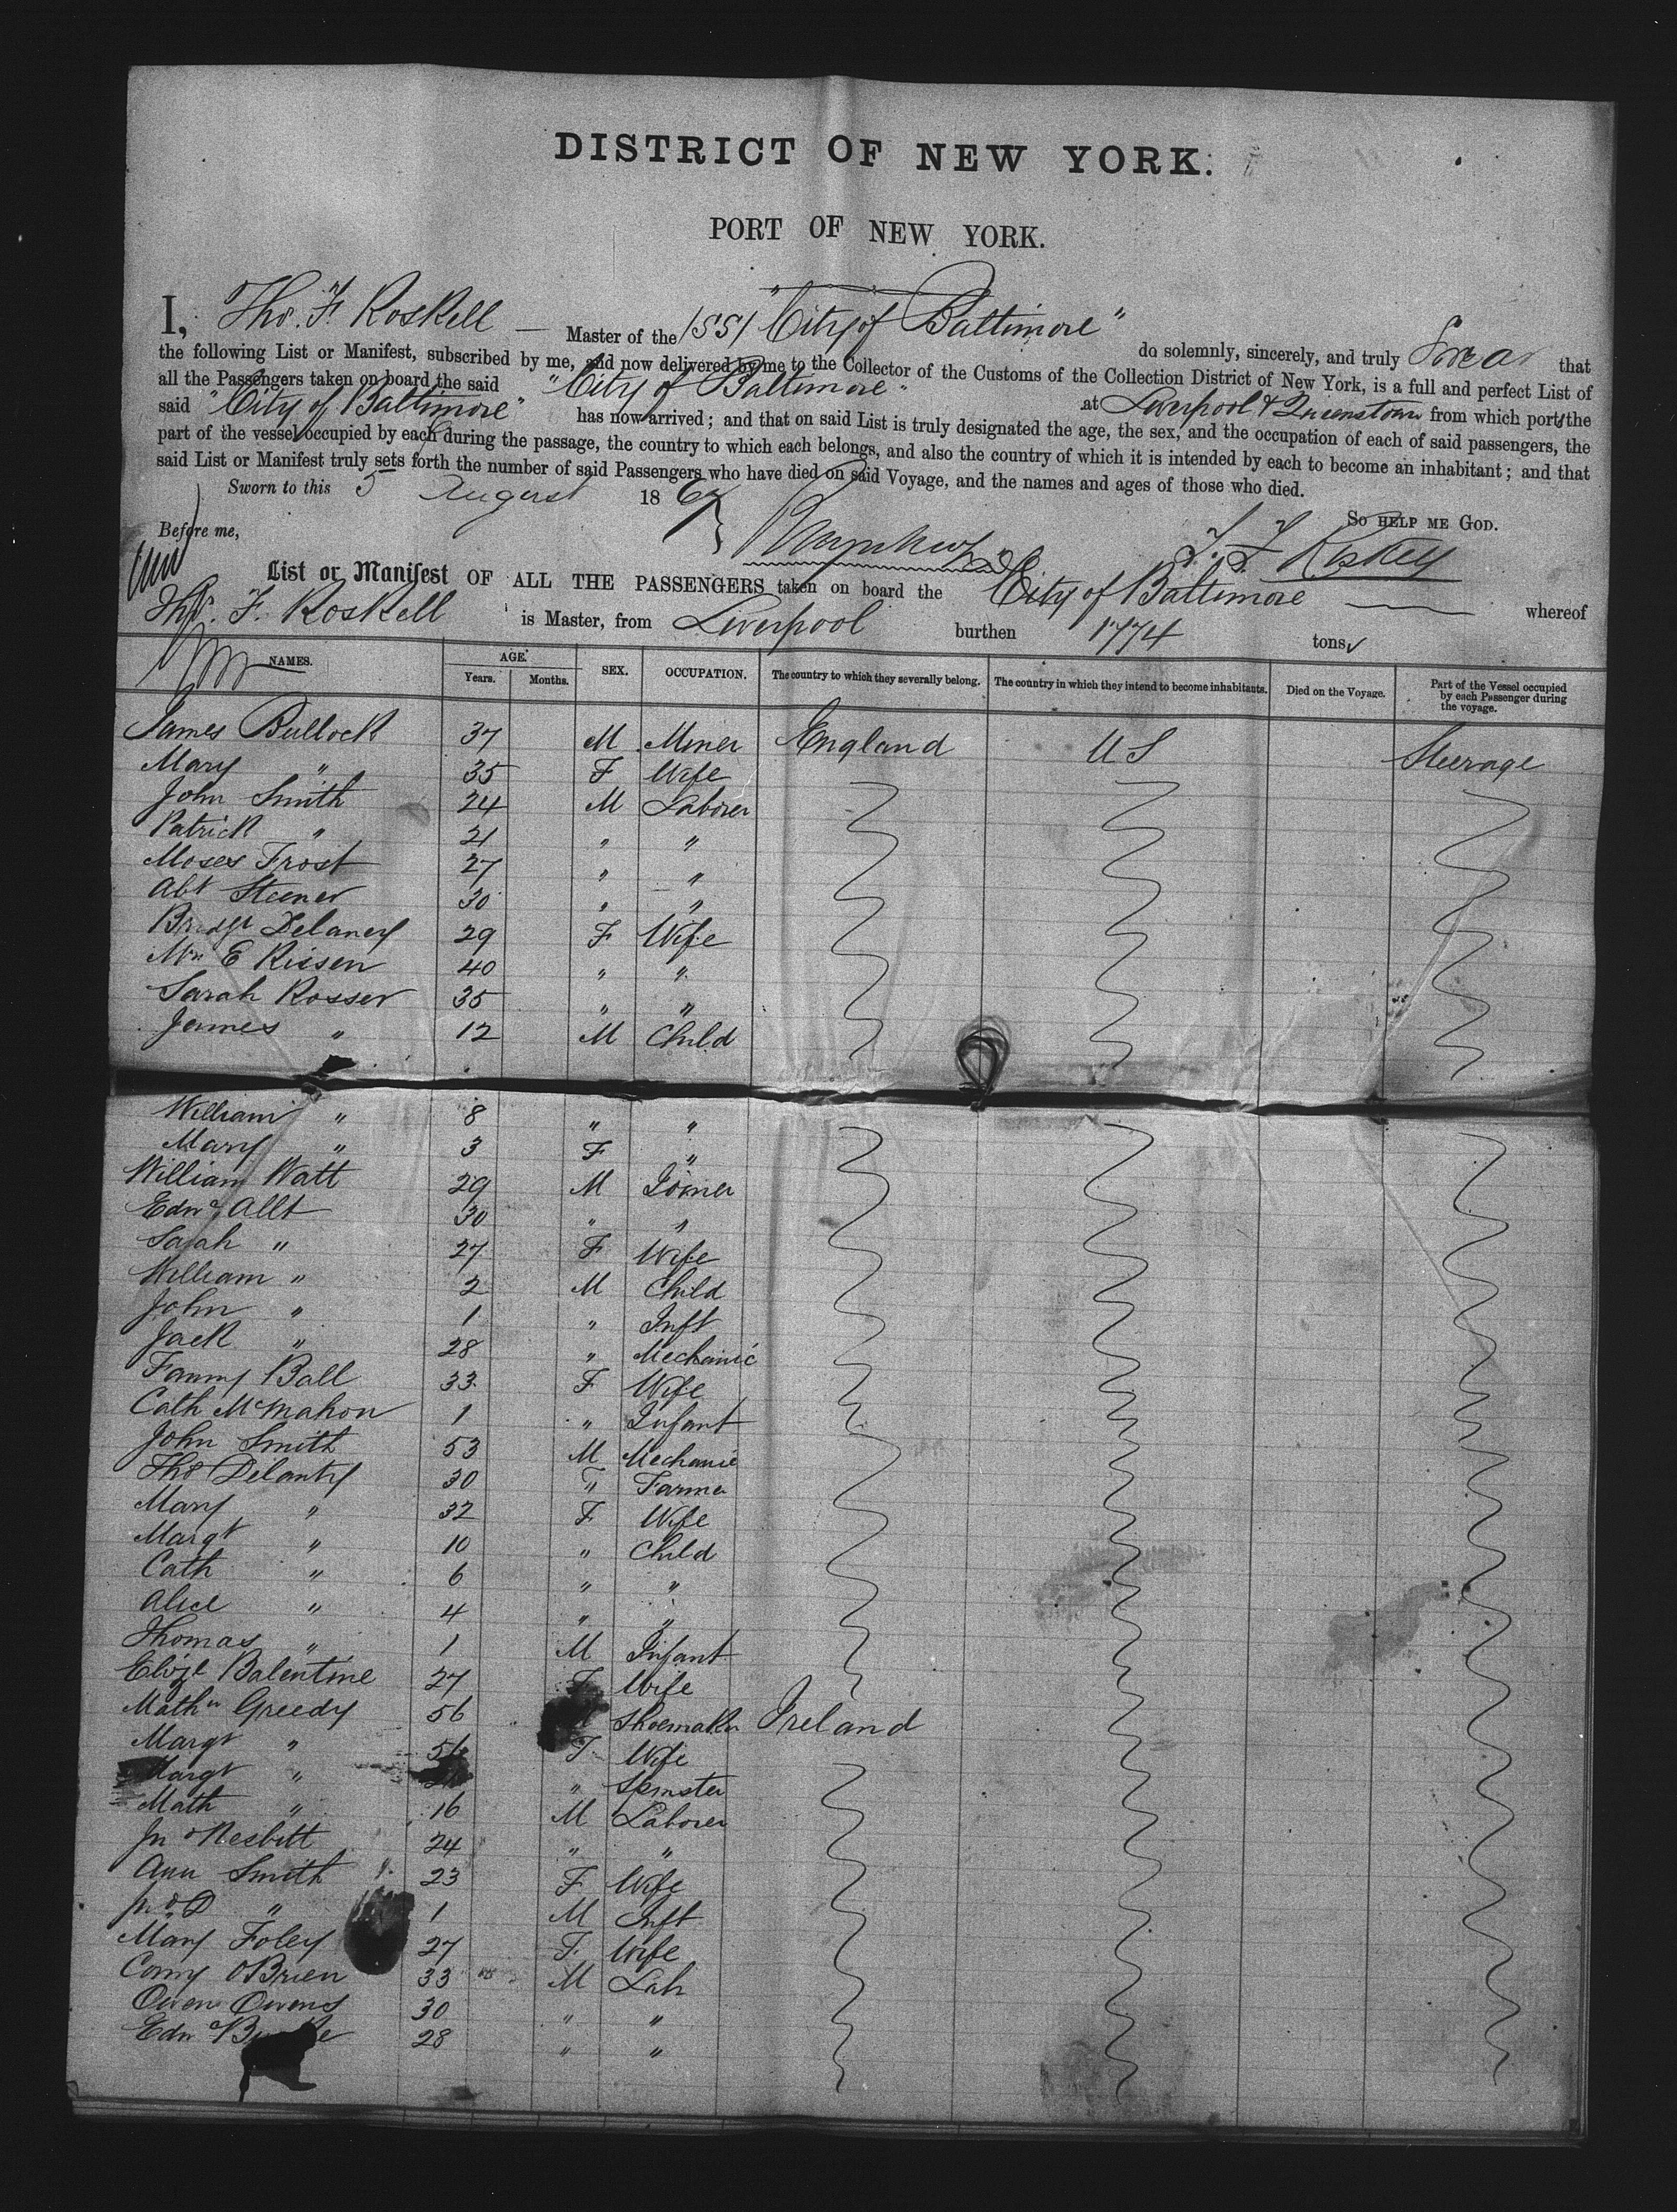 DISTRICT OF NEW YORK.
PORT OF NEW YORK.
I, Tho. F. Roskell — Master of the "City of Baltimore" do solemnly, sincerely, and truly Swear that
the following List or Manifest, subscribed by me, and now delivered by me to the Collector of the Customs of the Collection District of New York, is a full and perfect List of
all the Passengers taken on board the said "City of Baltimore" at Liverpool & Queenstown from which ports the
said "City of Baltimore" has now arrived; and that on said List is truly designated the age, the sex, and the occupation of each of said passengers, the
part of the vessel occupied by each during the passage, the country to which each belongs, and also the country of which it is intended by each to become an inhabitant; and that
said List or Manifest truly sets forth the number of said Passengers who have died on said Voyage, and the names and ages of those who died.
Sworn to this 5 August 1867
So help me God.
Before me,
T. F. Roskell
List or Manifest OF ALL THE PASSENGERS taken on board the City of Baltimore whereof
Tho. F. Roskell is Master, from Liverpool burthen 1774 tons
NAMES. AGE. Years. Months. SEX. OCCUPATION. The country to which they severally belong. The country in which they intend to become inhabitants. Died on the Voyage. Part of the Vessel occupied by each Passenger during the voyage.
James Bullock 37 M Miner England U S Steerage
Mary " 35 F Wife
John Smith 24 M Laborer
Patrick " 21 " "
Moses Frost 27 " "
Abt Steener 30 " "
Bridgt Delaney 29 F Wife
E Rissen 40 " "
Sarah Rosser 35 " "
James " 12 M Child
William " 8 " "
Mary " 3 F "
William Watt 29 M Joiner
Edwd Allt 30 " "
Sarah " 27 F Wife
William " 2 M Child
John " 1 " Inft
Jack " 28 " Mechanic
Fanny Ball 33 F Wife
Cath McMahon 1 " Infant
John Smith 53 M Mechanic
Thos Delanty 30 " Farmer
Mary " 32 F Wife
Margt " 10 " Child
Cath " 6 " "
Alice " 4 " "
Thomas " 1 M Infant
Elizt Balentine 27 F Wife
Mathw Greedy 56 Shoemaker Ireland
Margt " F Wife
Margt " " Spinster
Math " 16 M Laborer
Jno Nesbitt 24 " "
Ann Smith 23 F Wife
Jno D " 1 M Inft
Mary Foley 27 F Wife
Corny OBrien 33 M Lab
Owen Owens 30 " "
Edwd 28 " "